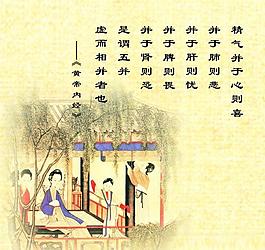 精气并于心则喜
并于肺则悲
并于肝则忧
并于脾则畏
并于肾则恐
是谓五并
虚而相并者也
——《黄帝内经》